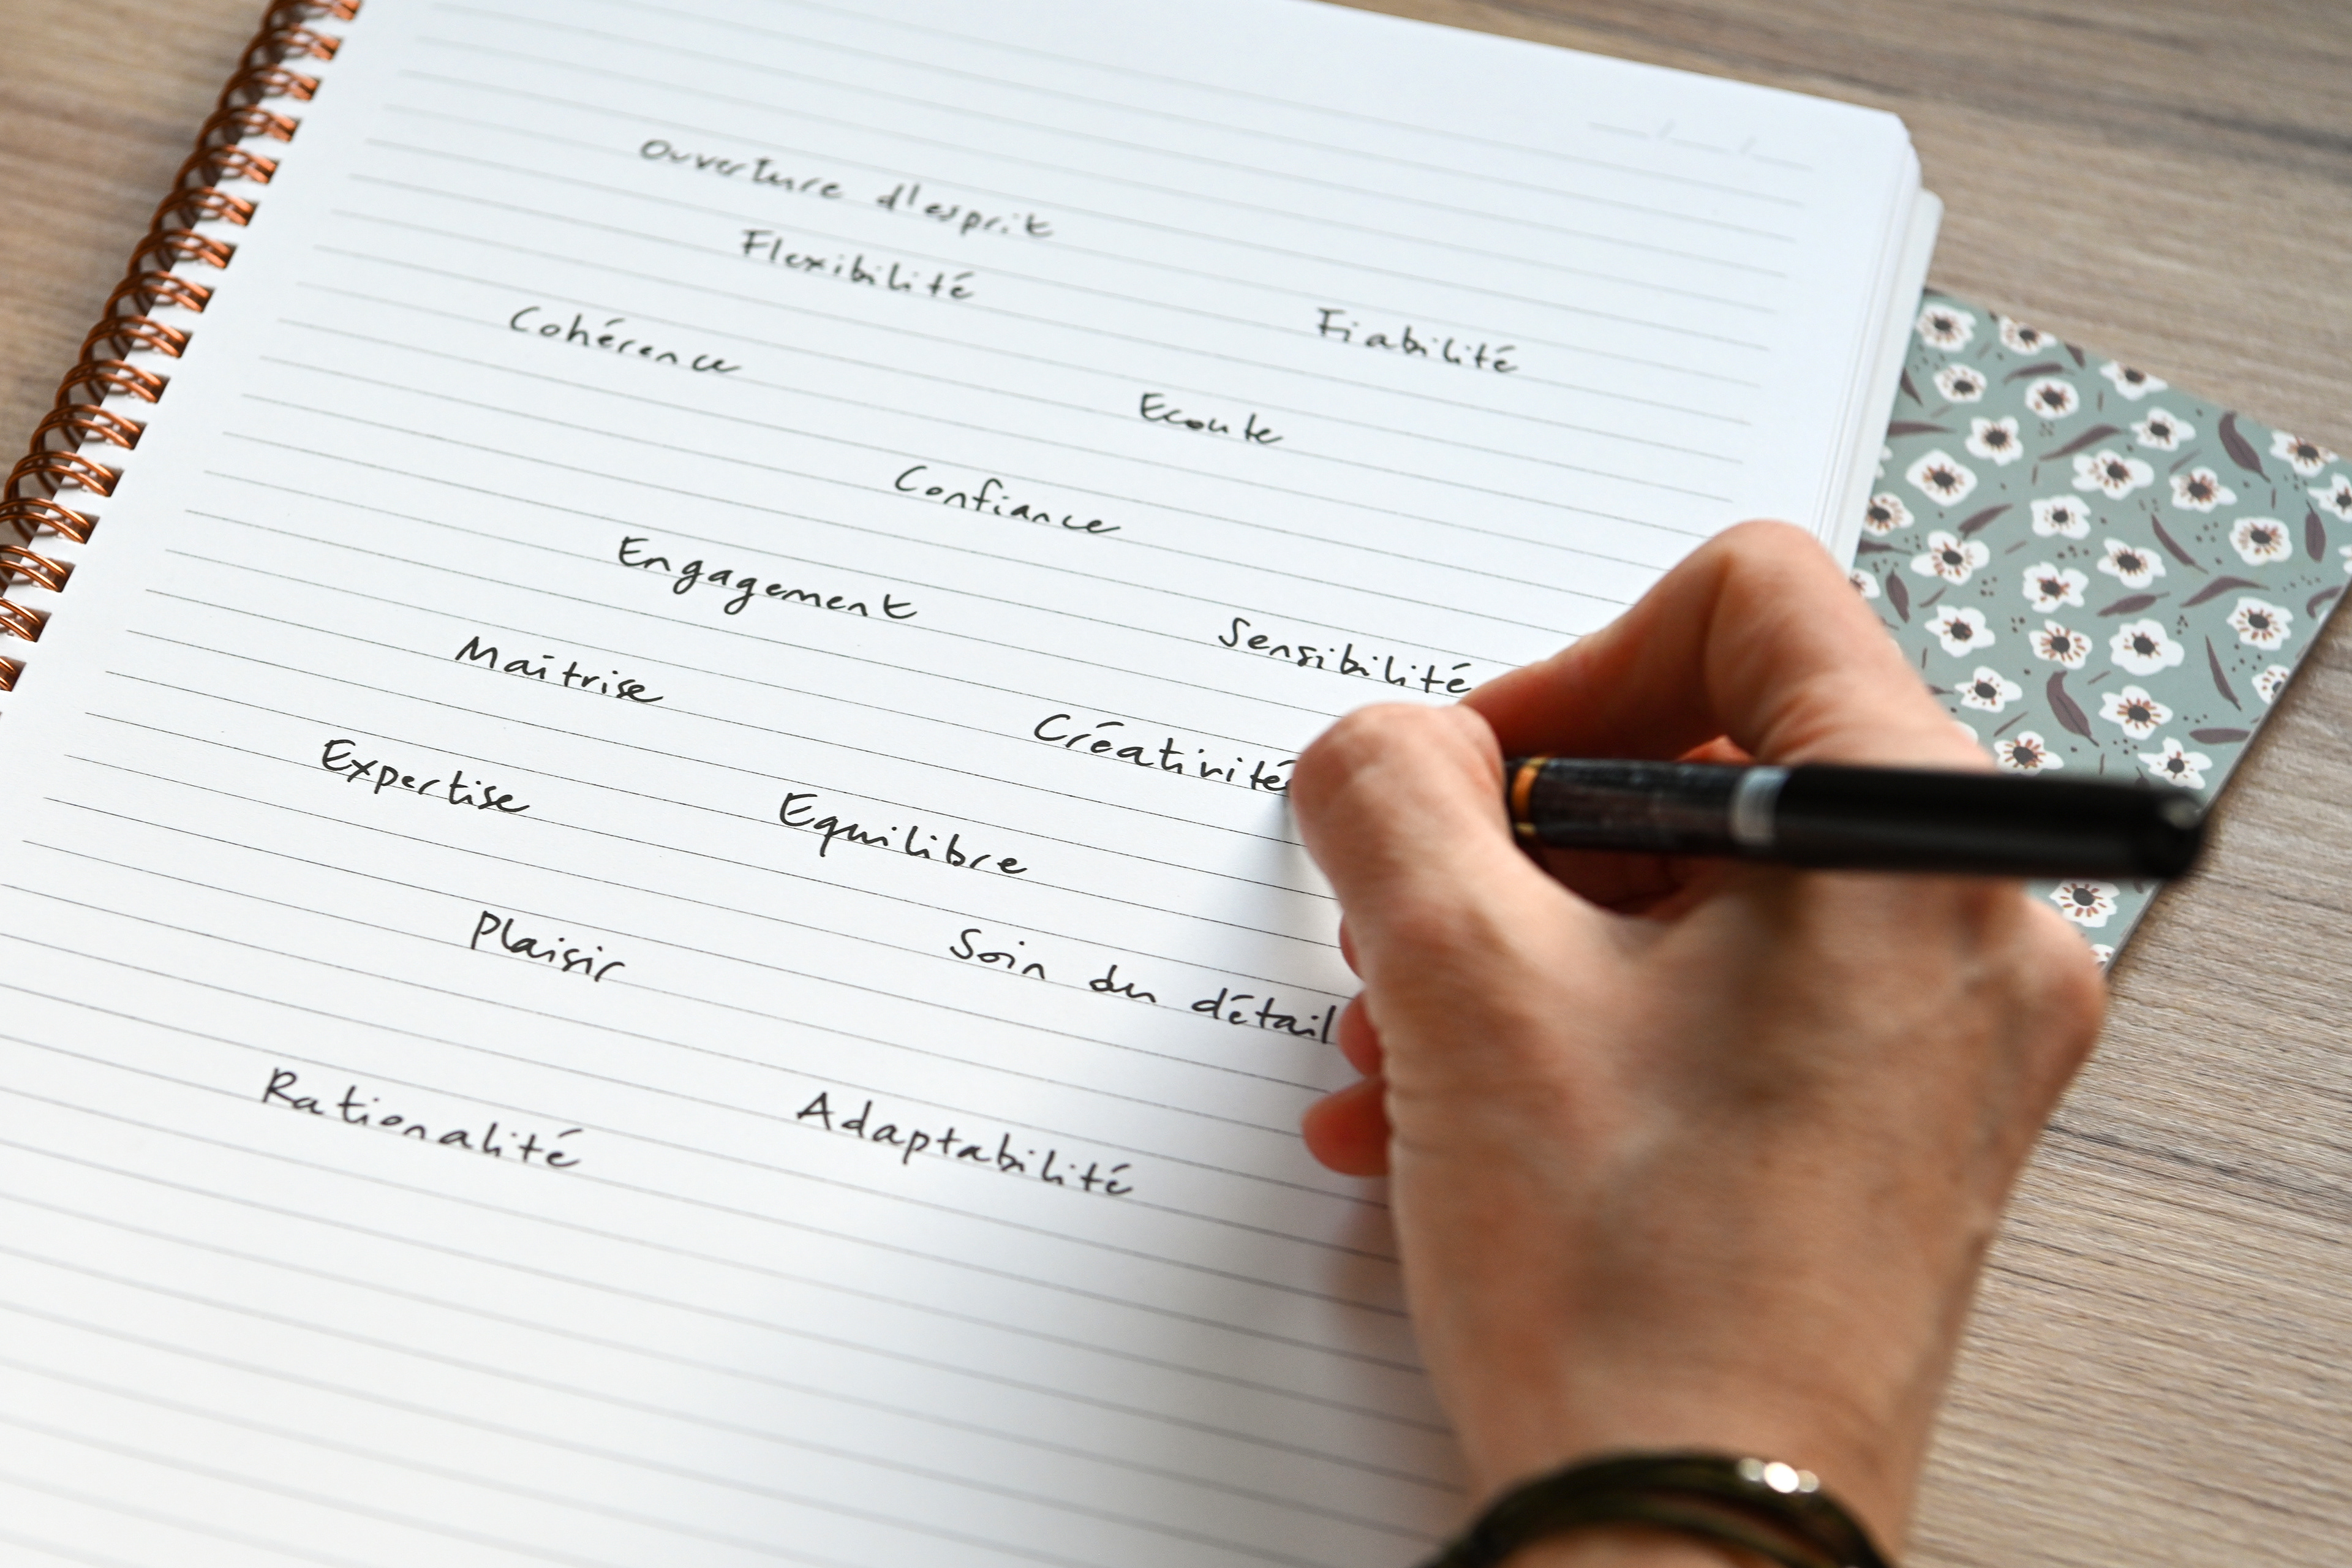 Ouverture d'esprit
Flexibilité
Fiabilité
Cohérence
Ecoute
Confiance
Engagement
Sensibilité
Maîtrise
Créativité
Expertise
Equilibre
Plaisir
Soin du détail
Rationalité
Adaptabilité